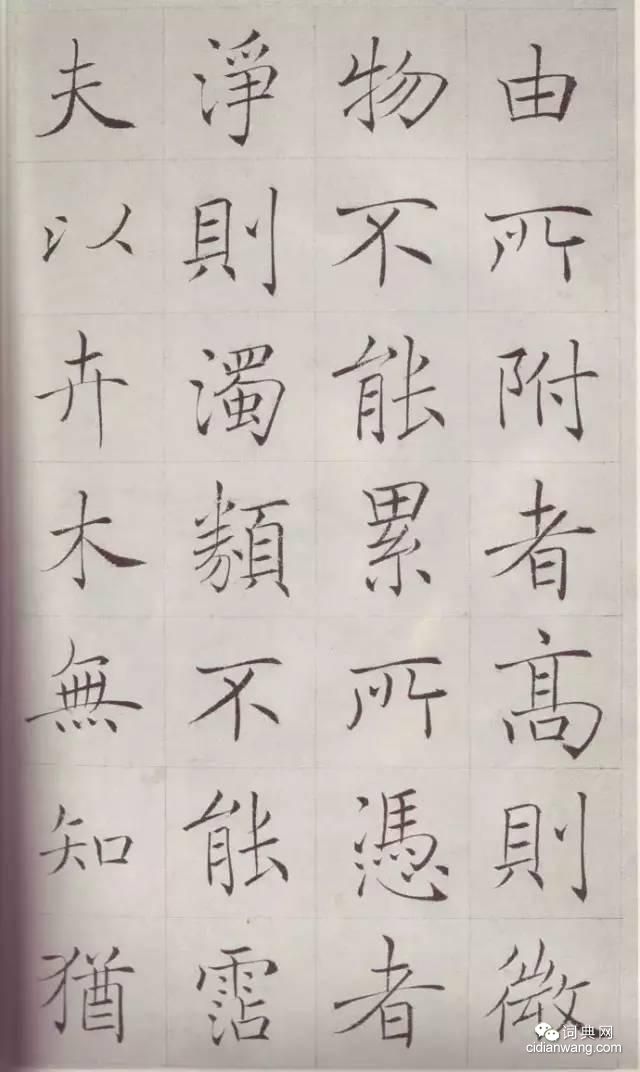 由所附者高則微
物不能累所憑者
淨則濁類不能霑
夫以卉木無知猶
词典网
cidianwang.com